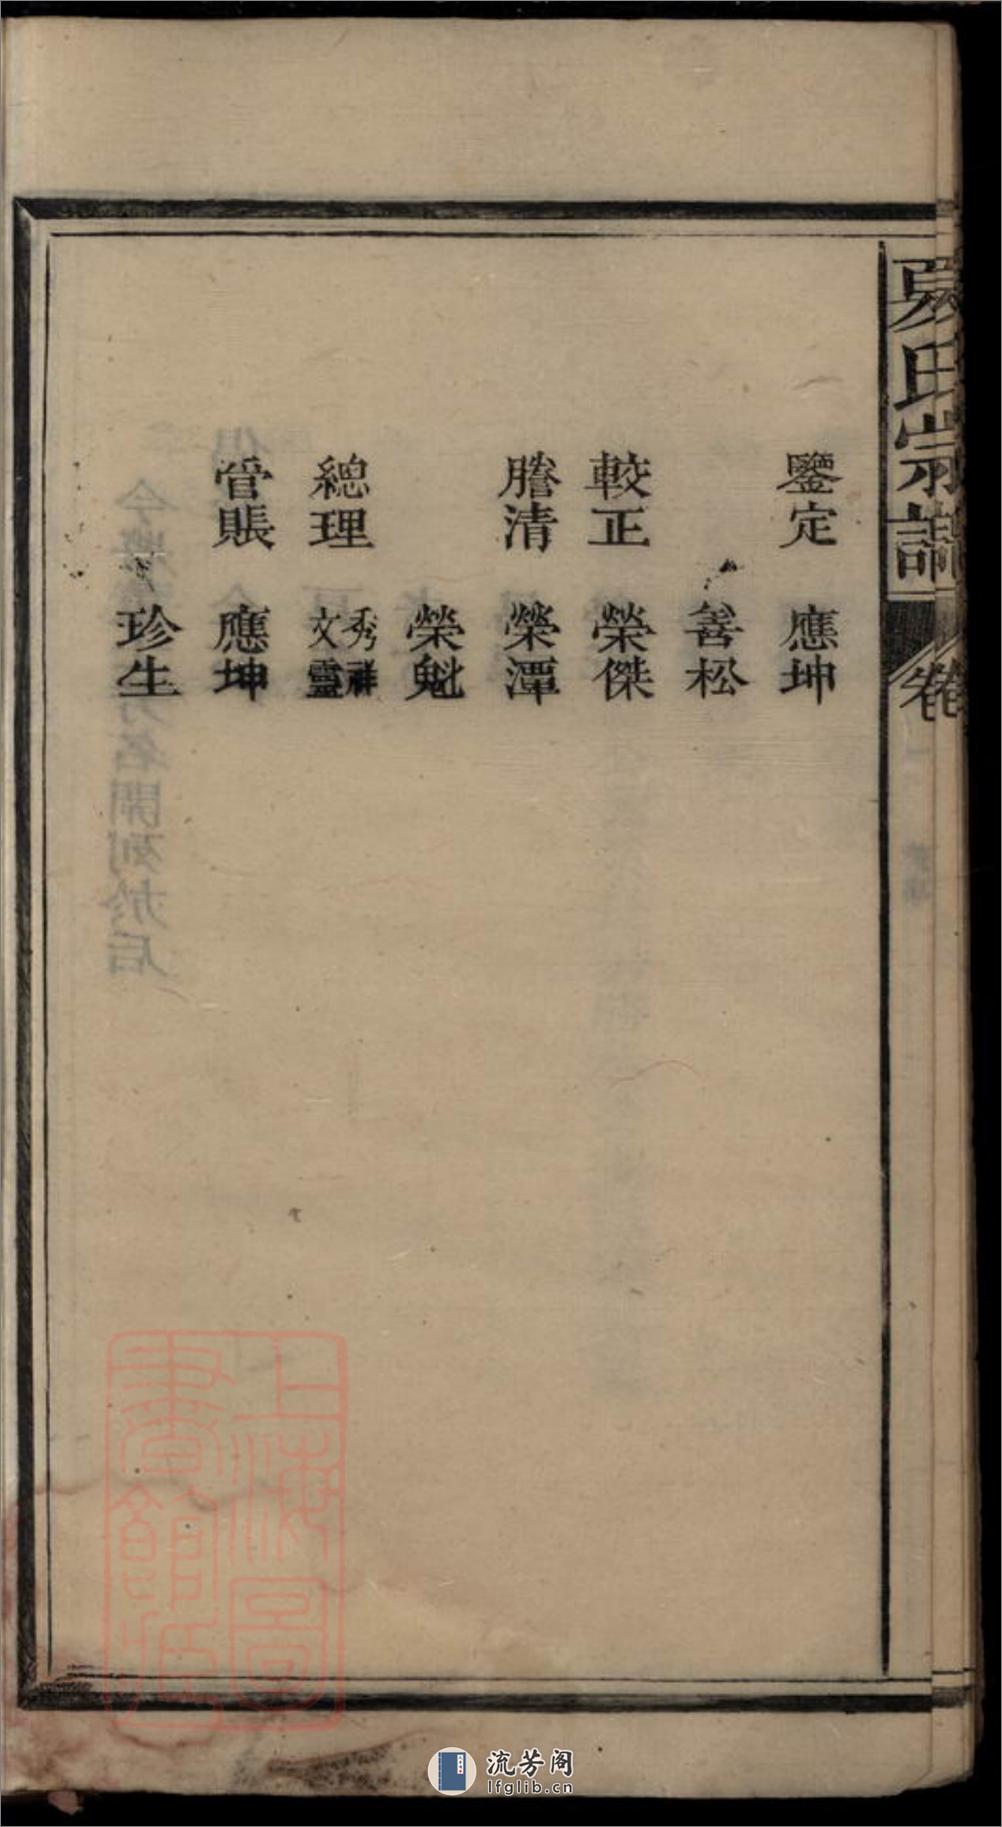 夏氏宗譜
卷
鑒定 應坤
善松
較正 榮傑
謄清 榮潭
榮魁
總理 秀祥 文靈
管賬 應坤
珍生
今
名開列於后
上海圖書館藏
流芳阁
lfglib.cn